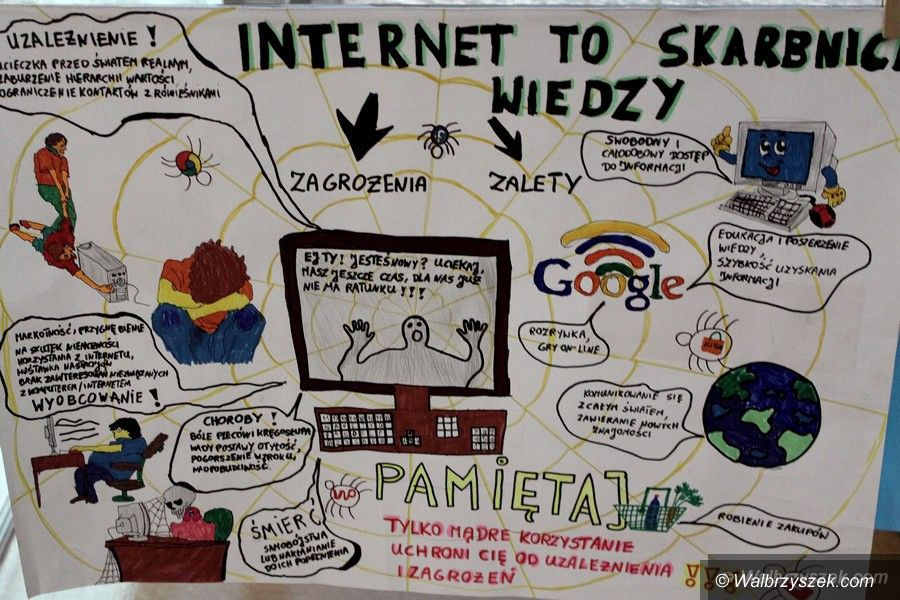 INTERNET TO SKARBNIC
WIEDZY
UZALEŻNIENIE !
UCIECZKA PRZED ŚWIATEM REALNYM,
ZABURZENIE HIERARCHII WARTOŚCI
OGRANICZENIE KONTAKTÓW Z RÓWIEŚNIKAMI
ZAGROŻENIA
ZALETY
SWOBODNY I
CAŁODOBOWY DOSTĘP
DO INFORMACJI
EJ TY! JESTEŚ NOWY? UCIEKAJ,
MASZ JESZCZE CZAS, DLA NAS JUŻ
NIE MA RATUNKU !!!
Google
EDUKACJA I POSZERZENIE
WIEDZY,
SZYBKOŚĆ UZYSKANIA
INFORMACJI
ROZRYWKA,
GRY ON-LINE
MARKOTNOŚĆ, PRZYGNĘBIENIE
NA SKUTEK NIEMOŻNOŚCI
KORZYSTANIA Z INTERNETU,
HUŚTAWKA NASTROJÓW
BRAK ZAINTERESOWAŃ NIEZWIĄZANYCH
Z KOMPUTEREM/INTERNETEM
WYOBCOWANIE !
KOMUNIKOWANIE SIĘ
Z CAŁYM ŚWIATEM,
ZAWIERANIE NOWYCH
ZNAJOMOŚCI
CHOROBY !
BÓLE PLECÓW I KRĘGOSŁUPA
WADY POSTAWY OTYŁOŚĆ,
POGORSZENIE WZROKU,
NADPOBUDLIWOŚĆ.
ŚMIERĆ
SAMOBÓJSTWA
LUB NAKŁANIANIE
DO ICH POPEŁNIENIA
PAMIĘTAJ
TYLKO MĄDRE KORZYSTANIE
UCHRONI CIĘ OD UZALEŻNIENIA
I ZAGROŻEŃ
ROBIENIE ZAKUPÓW
© Walbrzyszek.com